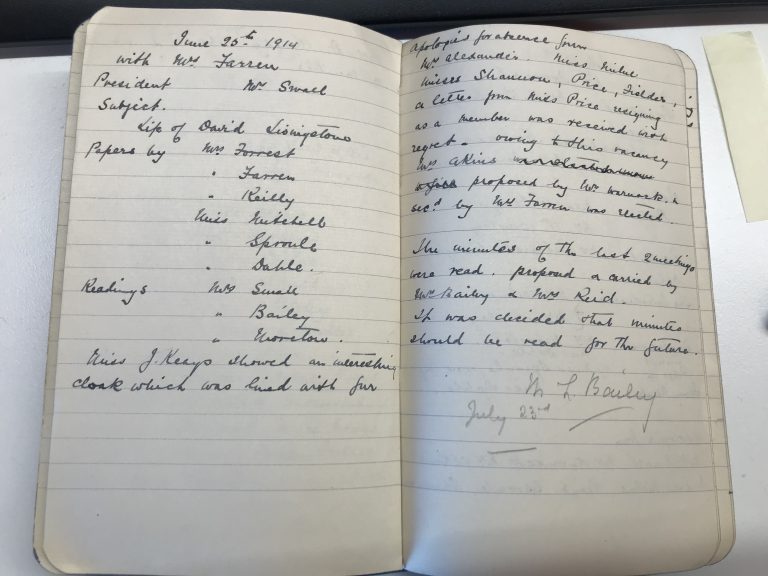 June 25th 1914
with Mrs Farren
President Mrs Small
Subject.
Life of David Livingstone
Papers by Mrs Forrest
" Farren
" Reilly
Miss Mitchell
" Sproule
" Dahle.
Readings Mrs Small
" Bailey
" Moreton.
Miss J. Keays showed an interesting
cloak which was lined with fur
Apologies for absence from
Mrs Alexander. Miss
Misses Shannon, Price, Fielder,
a letter from Miss Price resigning
as a member was received with
regret - owing to this vacancy
Mrs Akins
proposed by Mrs Warnock &
secd by Mrs Farren was elected.
The minutes of the last 2 meetings
were read. proposed & carried by
Mrs Bailey & Mrs Reid.
It was decided that minutes
should be read for the future.
M L Bailey
July 23rd